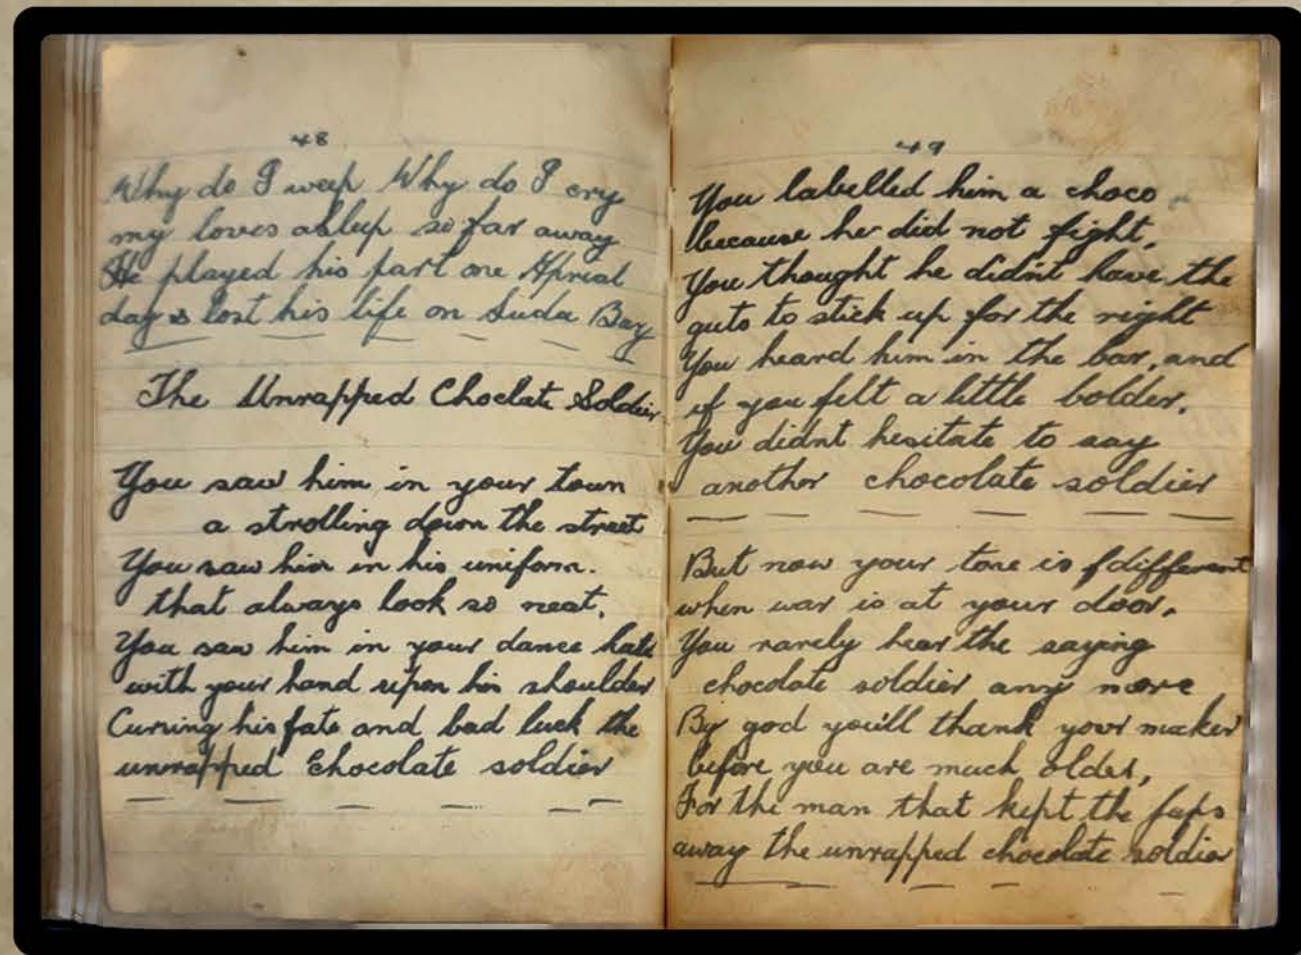 48
Why do I weep Why do I cry
my loves asleep so far away
He played his part one Aprial
day & lost his life on Suda Bay
The Unrapped Choclate Soldier
You saw him in your town
a strolling down the street
You saw him in his uniform.
that always look so neat.
You saw him in your dance hall
with your hand upon his shoulder
Cursing his fate and bad luck the
unrapped chocolate soldier
49
You labelled him a choco
because he did not fight.
You thought he didnt have the
guts to stick up for the right
You heard him in the bar, and
if you felt a little bolder.
You didnt hesitate to say
another chocolate soldier
But now your tone is different
when war is at your door.
You rarely hear the saying
chocolate soldier any more
By god you'll thank your maker
before you are much older,
For the man that kept the Japs
away the unrapped chocolate soldier